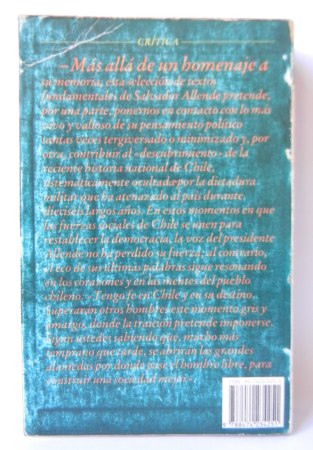 CRÍTICA
–Más allá de un homenaje a
su memoria, esta selección de textos
fundamentales de Salvador Allende pretende,
por una parte, ponernos en contacto con lo más
vivo y valioso de su pensamiento político
tantas veces tergiversado o minimizado y, por
otra, contribuir al «descubrimiento» de la
reciente historia national de Chile,
sistemáticamente ocultada por la dictadura
militar que ha atenazado al país durante
dieciséis largos años. En estos momentos en que
las fuerzas sociales de Chile se unen para
restablecer la democracia, la voz del presidente
Allende no ha perdido su fuerza; al contrario,
el eco de sus últimas palabras sigue resonando
en los corazones y en las mentes del pueblo
chileno: «Tengo fe en Chile y en su destino.
Superarán otros hombres este momento gris y
amargo, donde la traición pretende imponerse.
Sigan ustedes sabiendo que, mucho más
temprano que tarde, se abrirán las grandes
alamedas por donde pase el hombre libre, para
construir una sociedad mejor».